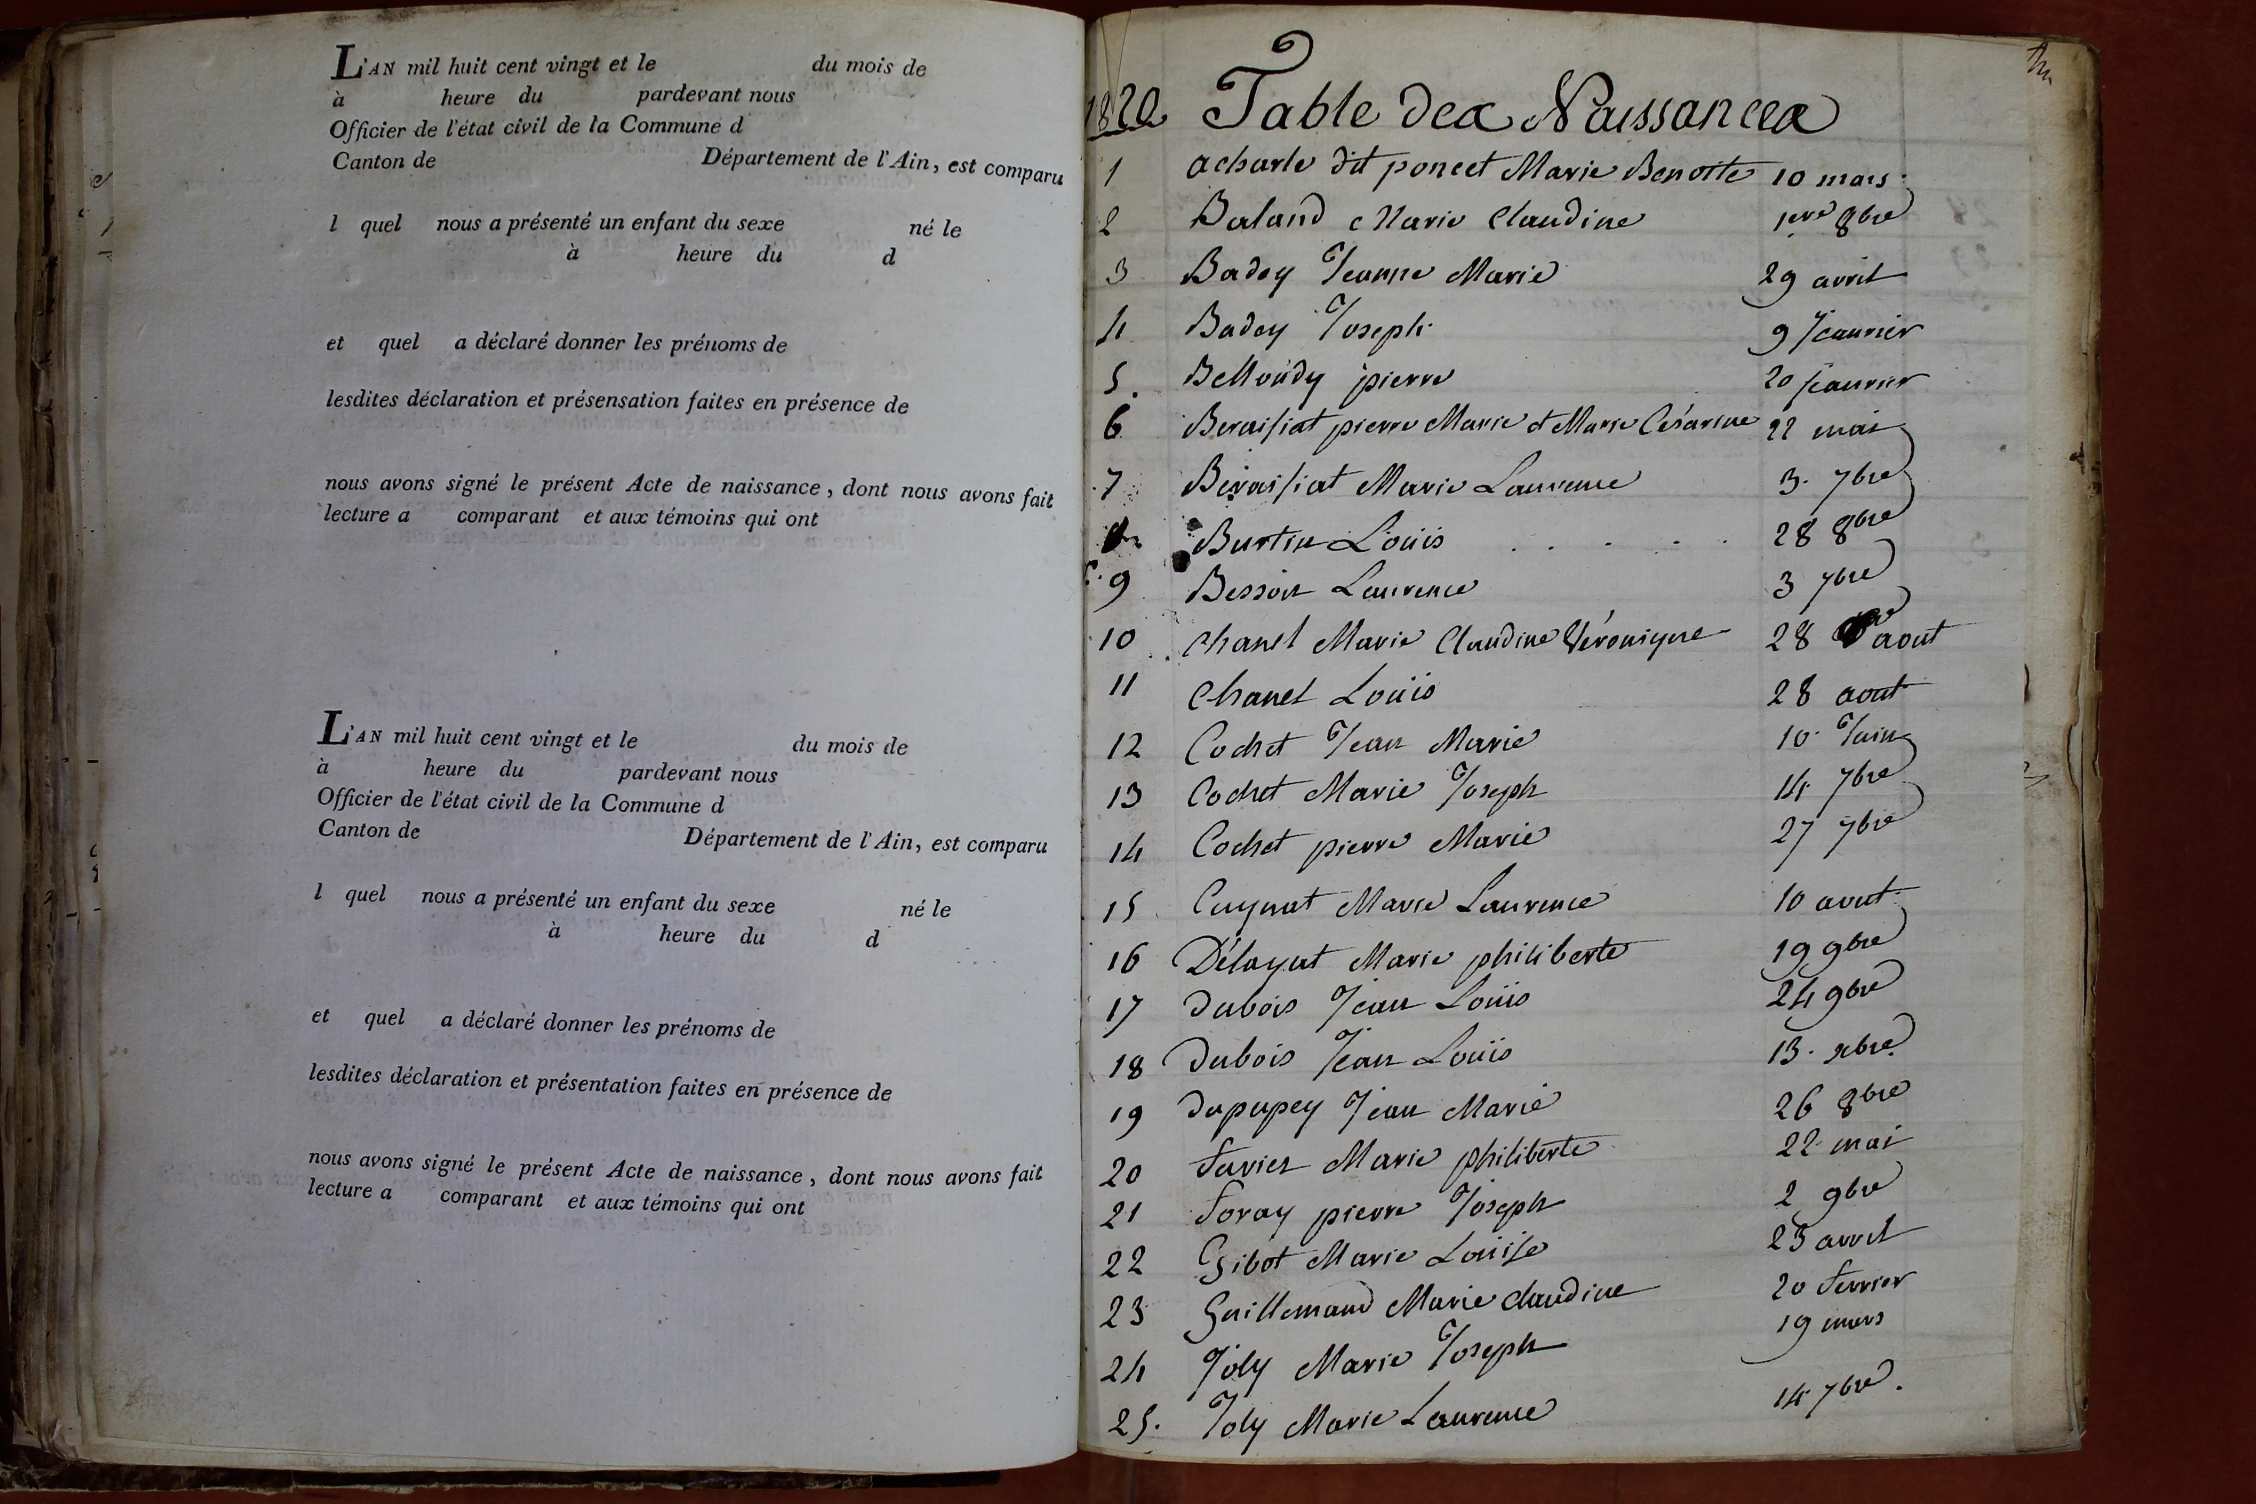 L'AN mil huit cent vingt et le du mois de
à heure du pardevant nous
Officier de l'état civil de la Commune d
Canton de Département de l'Ain, est comparu
l quel nous a présenté un enfant du sexe né le
à heure du d
et quel a déclaré donner les prénoms de
lesdites déclaration et présensation faites en présence de
nous avons signé le présent Acte de naissance, dont nous avons fait
lecture a comparant et aux témoins qui ont
L'AN mil huit cent vingt et le du mois de
à heure du pardevant nous
Officier de l'état civil de la Commune d
Canton de Département de l'Ain, est comparu
l quel nous a présenté un enfant du sexe né le
à heure du d
et quel a déclaré donner les prénoms de
lesdites déclaration et présentation faites en présence de
nous avons signé le présent Acte de naissance, dont nous avons fait
lecture a comparant et aux témoins qui ont
1820 Table des Naissances
1 acharle dit poncet Marie Benoite 10 mars
2 Baland Marie Claudine 1ere 8bre
3 Badey Jeanne Marie 29 avril
4 Badey Joseph 9 Janvier
5. Belloudy pierre 20 Janvier
6 Beraisiat pierre Marie et Marie Césarine 22 mai
7 Beraisiat Marie Laurence 3. 7bre
Burtin Louis . . . . . 28 8bre
9 Besson Laurence 3 7bre
10 Chanel Marie Claudine Véronique 28 aout
11 Chanel Louis 28 aout
12 Cochet Jean Marie 10. Juin
13 Cochet Marie Joseph 14 7bre
14 Cochet pierre Marie 27 7bre
15 Cuynat Marie Laurence 10 aout
16 Délayat Marie philiberte 19 9bre
17 Dubois Jean Louis 24 9bre
18 Dubois Jean Louis 13. xbre
19 Dupupey Jean Marie 26 8bre
20 Favier Marie philiberte 22 mai
21 Foray pierre Joseph 2 9bre
22 Gibot Marie Louise 23 avril
23 Guillemaud Marie claudine 20 Fevrier
24 Joly Marie Joseph 19 mars
25. Joly Marie Laurence 14 7bre.